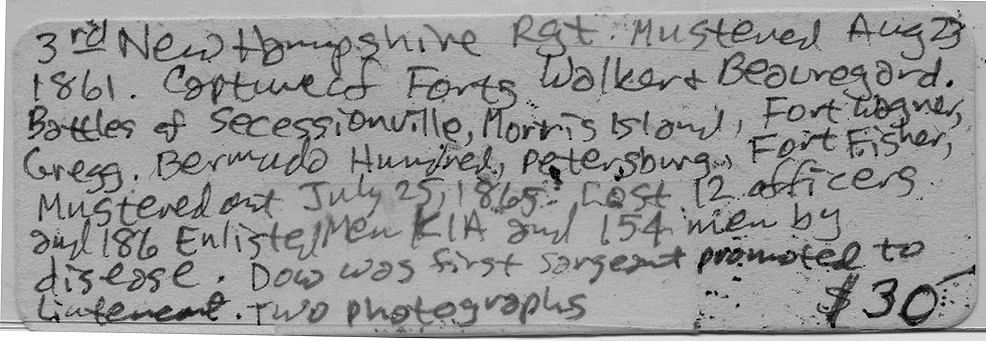 3rd New Hampshire Rgt. Mustered Aug 23
1861. Capture of Forts Walker & Beauregard.
Battles of Secessionville, Morris Island, Fort Wagner,
Gregg. Bermuda Hundred, Petersburg, Fort Fisher,
Mustered out July 25, 1865. Lost 12 officers
and 186 Enlisted Men KIA and 154 men by
disease. Dow was first sargeant promoted to
Liutenent. Two photographs $30